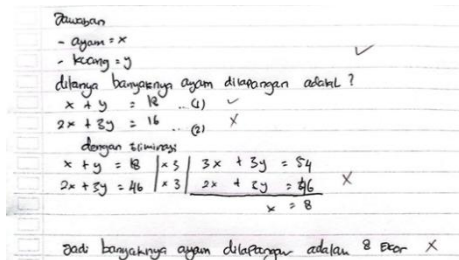 Jawaban
- ayam = x
- kucing = y
ditanya banyaknya ayam dilapangan adalah ?
x + y = 18 .. (1)
2x + 3y = 16 .. (2)
dengan Eliminasi
x + y = 18 | x3 | 3x + 3y = 54
2x + 3y = 46 | x3 | 2x + 3y = 46
x = 8
Jadi banyaknya ayam dilapangan adalah 8 Ekor